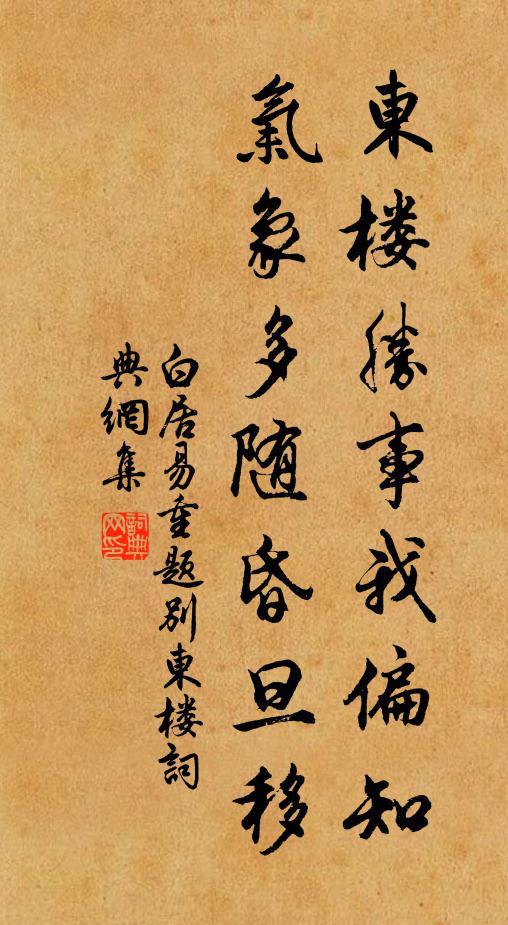 東楼勝事我偏知
氣象多随昏旦移
白居易重题别東楼詞
典網集
詞典网印